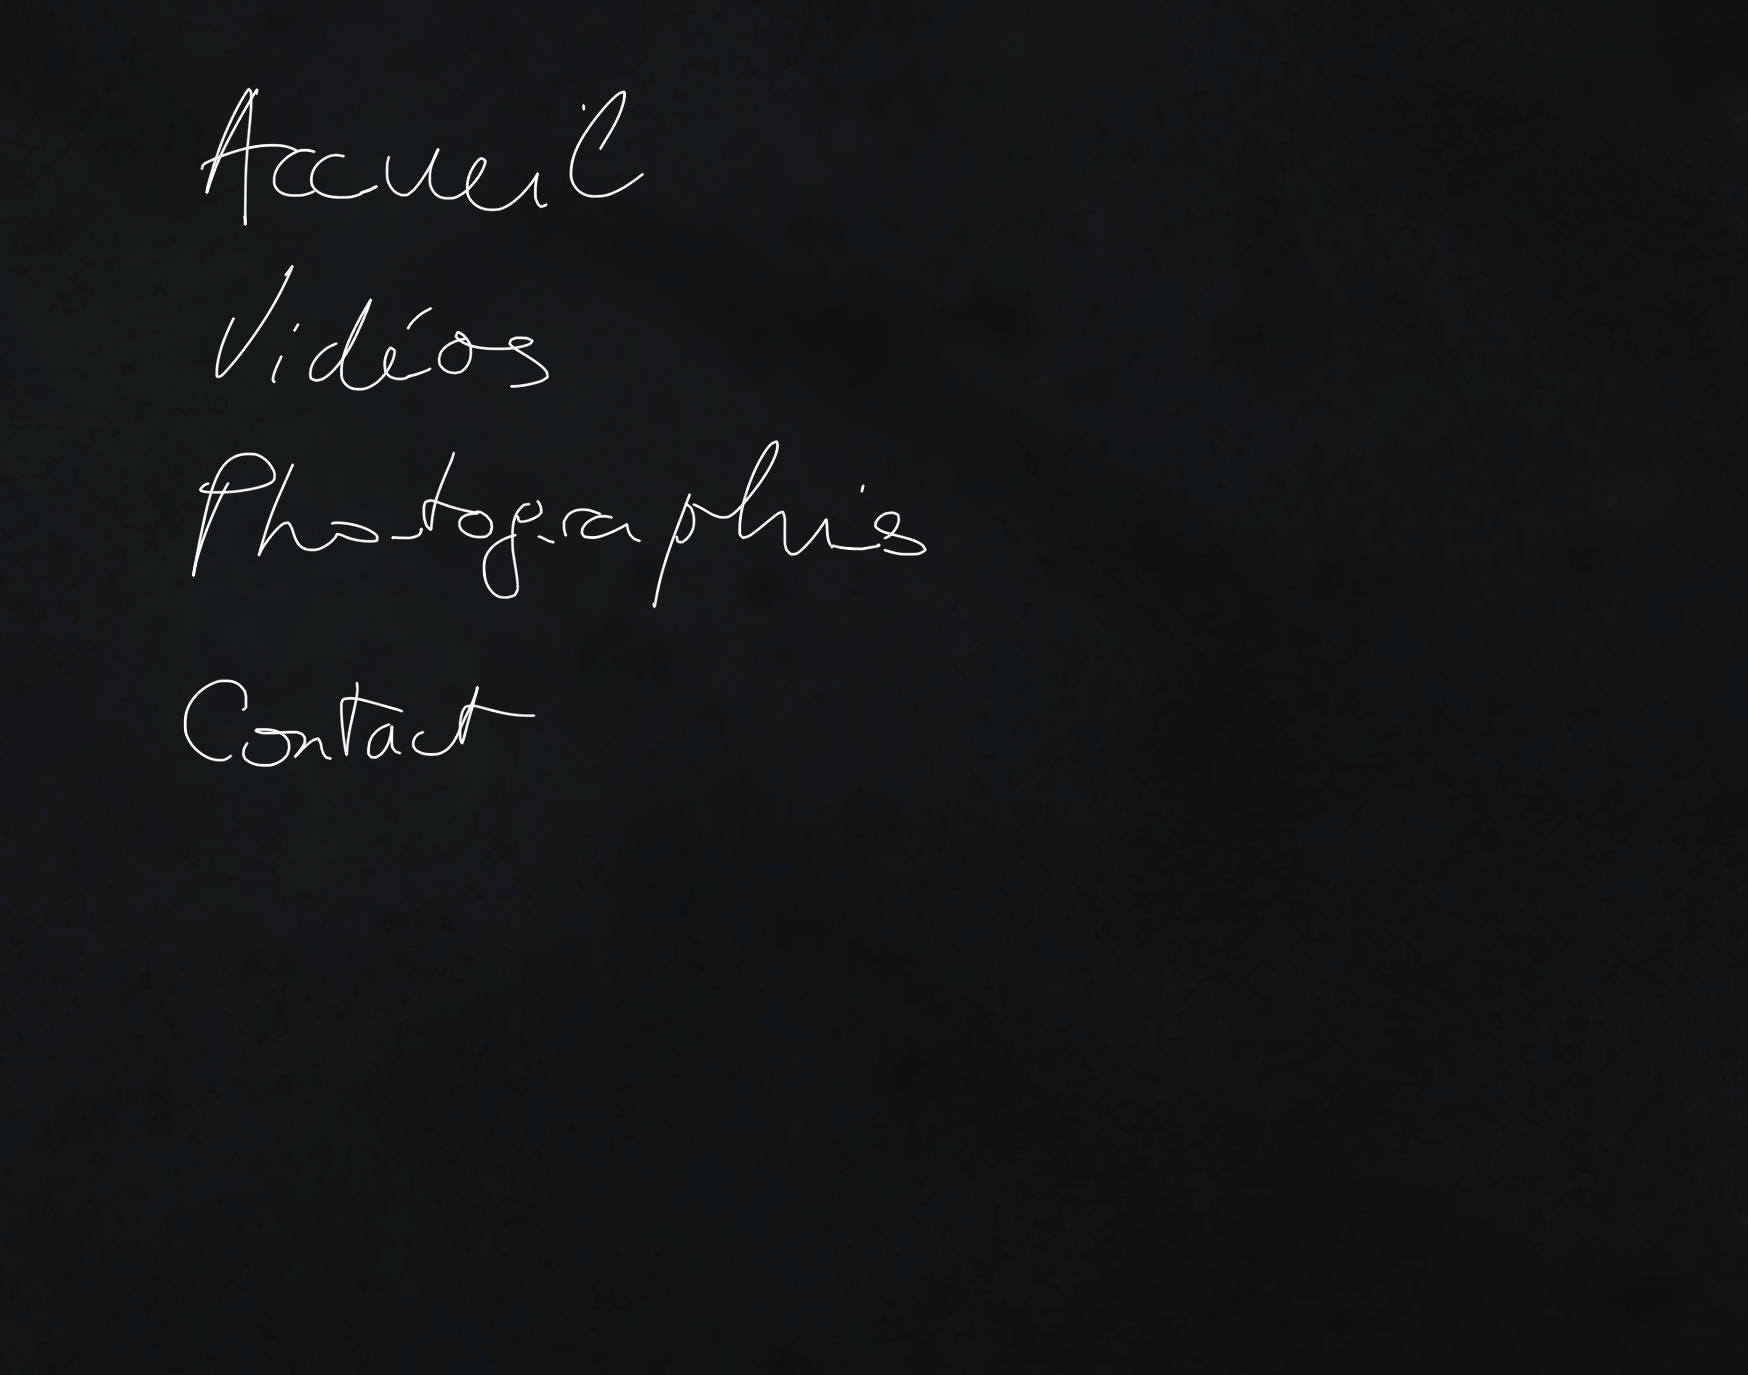 Accueil
Vidéos
Photographies
Contact